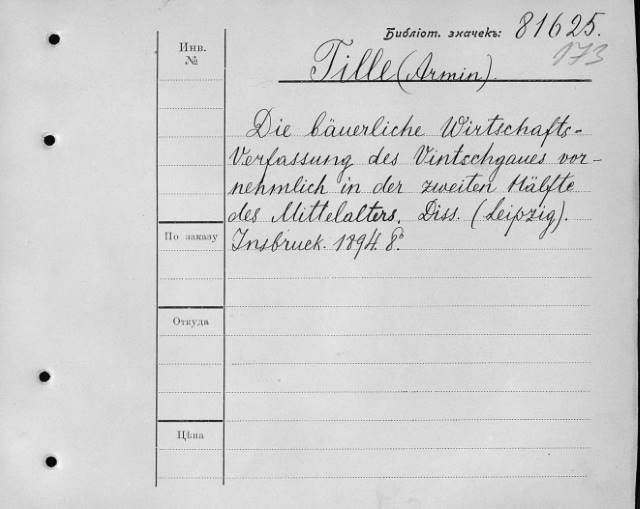 Библіот. значекъ: 81625.
173
Инв.
№
Tille (Armin).
Die bäuerliche Wirtschafts-
Verfassung des Vintschgaues vor-
nehmlich in der zweiten Hälfte
des Mittelalters. Diss. (Leipzig).
По заказу
Insbruck. 1894. 8°.
Откуда
Цѣна